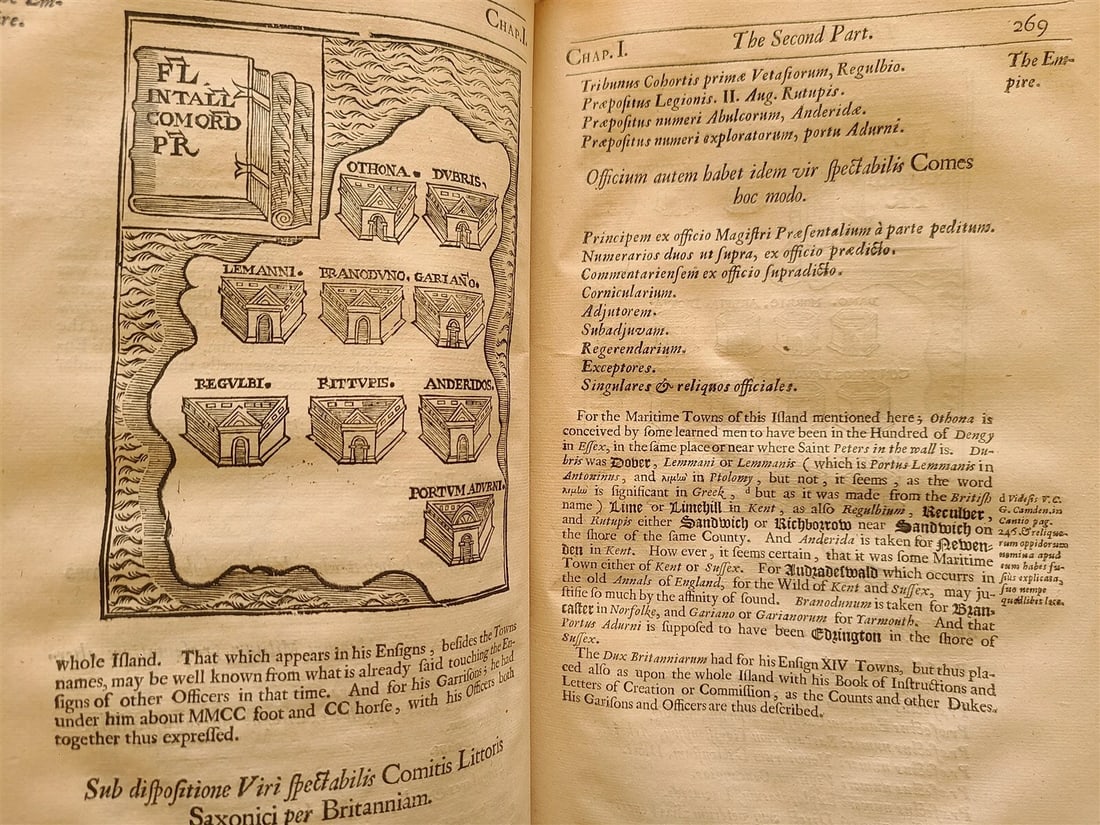 ire.
CHAP. I.
FL
INTALL
COMORD
PR
OTHONA. DVBRIS,
LEMANNI. BRANODVNO. GARIAÑO.
REGVLBI. RITTVPIS. ANDERIDOS.
PORTVM ADVRNI.
whole Iſland. That which appears in his Enſigns, beſides the Towns
names, may be well known from what is already ſaid touching the En-
ſigns of other Officers in that time. And for his Garriſons; he had
under him about MMCC foot and CC horſe, with his Officers both
together thus expreſſed.
Sub diſpoſitione Viri ſpectabilis Comitis Littoris
Saxonici per Britanniam.
CHAP. I. The Second Part. 269
The Em-
pire.
Tribunus Cohortis primæ Vetaſiorum, Regulbio.
Præpoſitus Legionis. II. Aug. Rutupis.
Præpoſitus numeri Abulcorum, Anderidæ.
Præpoſitus numeri exploratorum, portu Adurni.
Officium autem habet idem vir ſpectabilis Comes
hoc modo.
Principem ex officio Magiſtri Præſentalium à parte peditum.
Numerarios duos ut ſupra, ex officio prædicto.
Commentarienſem ex officio ſupradicto.
Cornicularium.
Adjutorem.
Subadjuvam.
Regerendarium.
Exceptores.
Singulares & reliquos officiales.
For the Maritime Towns of this Iſland mentioned here; Othona is
conceived by ſome learned men to have been in the Hundred of Dengy
in Eſſex, in the ſame place or near where Saint Peters in the wall is. Du-
bris was Dover, Lemmani or Lemmanis (which is Portus Lemmanis in
Antoninus, and λιμὴν in Ptolomy, but not, it ſeems, as the word
λιμὴν is significant in Greek, d but as it was made from the Britiſh
name) Lime or Limehill in Kent, as alſo Regulbium, Reculver,
and Rutupis either Sandwich or Richborrow near Sandwich on
the ſhore of the ſame County. And Anderida is taken for Newen-
den in Kent. How ever, it ſeems certain, that it was ſome Maritime
Town either of Kent or Suſſex. For Andradeſwald which occurrs in
the old Annals of England, for the Wild of Kent and Suſſex, may ju-
ſtifie ſo much by the affinity of ſound. Branodunum is taken for Bran-
caſter in Norfolke, and Gariano or Garianorum for Yarmouth. And that
Portus Adurni is ſuppoſed to have been Edrington in the ſhore of
Suſſex.
The Dux Britanniarum had for his Enſign XIV Towns, but thus pla-
ced alſo as upon the whole Iſland with his Book of Inſtructions and
Letters of Creation or Commiſſion, as the Counts and other Dukes.
His Gariſons and Officers are thus deſcribed.
d Videſis V. C.
G. Camden. in
Cantio pag.
246. & relique-
rum oppidorum
nomina apud
eum habes fu-
ſius explicata,
ſuo nempe
quælibet loco.